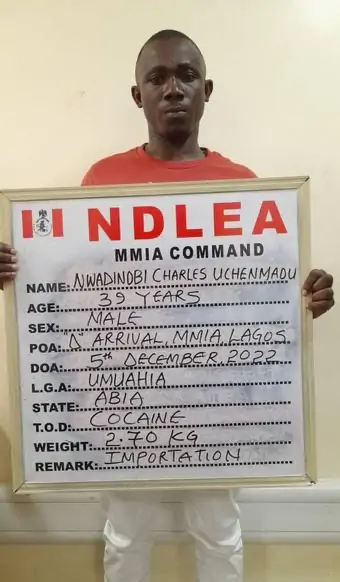 NDLEA
MMIA COMMAND
NAME: NWADINOBI CHARLES UCHENMADU
AGE: 39 YEARS
SEX: MALE
POA: "D" ARRIVAL, MMIA, LAGOS
DOA: 5th DECEMBER, 2022
L.G.A: UMUAHIA
STATE: ABIA
T.O.D: COCAINE
WEIGHT: 2.70 KG
REMARK: IMPORTATION